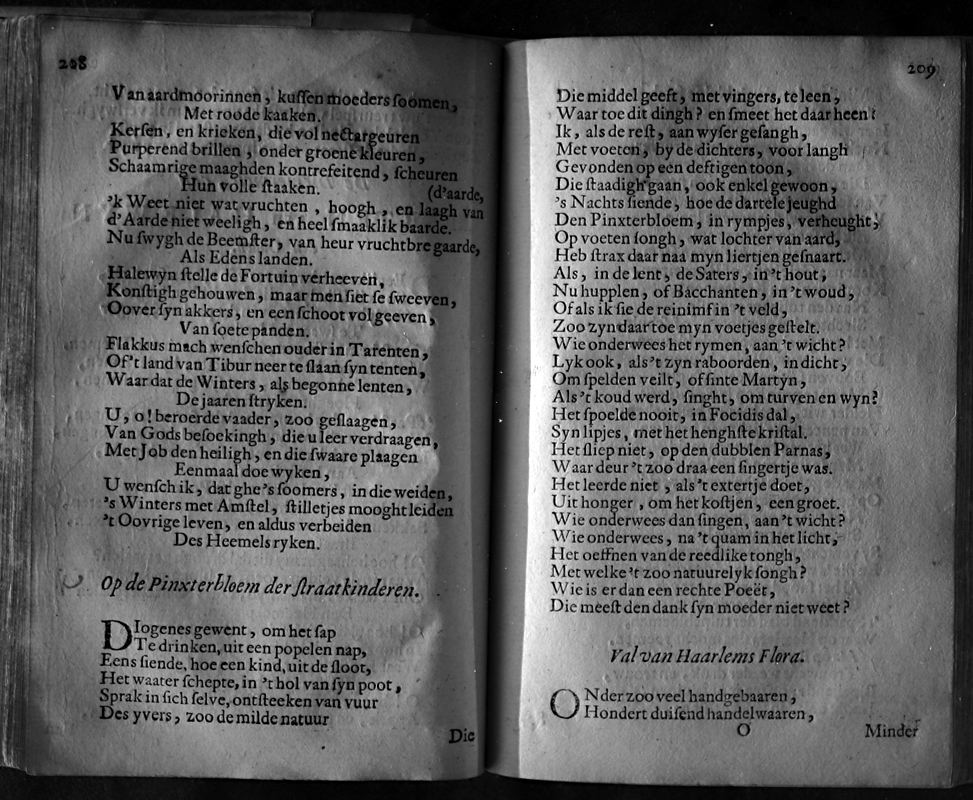 208
Van aardmoorinnen, kuſſen moeders ſoomen,
Met roode kaaken.
Kerſen, en krieken, die vol nectargeuren
Purperend brillen, onder groene kleuren,
Schaamrige maaghden kontrefeitend, ſcheuren
Hun volle ſtaaken.
(d'aarde,
'k Weet niet wat vruchten, hoogh, en laagh van
d'Aarde niet weeligh, en heel ſmaaklik baarde.
Nu ſwygh de Beemſter, van heur vruchtbre gaarde,
Als Edens landen.
Halewyn ſtelle de Fortuin verheeven,
Konſtigh gehouwen, maar men ſiet ſe ſweeven,
Oover ſyn akkers, en een ſchoot vol geeven,
Van ſoete panden.
Flakkus mach wenſchen ouder in Tarenten,
Of 't land van Tibur neer te ſlaan ſyn tenten,
Waar dat de Winters, als begonne lenten,
De jaaren ſtryken.
U, o! beroerde vaader, zoo geſlaagen,
Van Gods beſoekingh, die u leer verdraagen,
Met Job den heiligh, en die ſwaare plaagen
Eenmaal doe wyken,
U wenſch ik, dat ghe 's ſoomers, in die weiden,
's Winters met Amſtel, ſtilletjes mooght leiden
't Oovrige leven, en aldus verbeiden
Des Heemels ryken.
Op de Pinxterbloem der ſtraatkinderen.
DIogenes gewent, om het ſap
Te drinken, uit een popelen nap,
Eens ſiende, hoe een kind, uit de ſloot,
Het waater ſchepte, in 't hol van ſyn poot,
Sprak in ſich ſelve, ontſteeken van vuur
Des yvers, zoo de milde natuur
Die
209
Die middel geeft, met vingers, te leen,
Waar toe dit dingh? en ſmeet het daar heen:
Ik, als de reſt, aan wyſer geſangh,
Met voeten, by de dichters, voor langh
Gevonden op een deftigen toon,
Die ſtaadigh gaan, ook enkel gewoon,
's Nachts ſiende, hoe de dartele jeughd
Den Pinxterbloem, in rympjes, verheught,
Op voeten ſongh, wat lochter van aard,
Heb ſtrax daar naa myn liertjen geſnaart.
Als, in de lent, de Saters, in 't hout,
Nu hupplen, of Bacchanten, in 't woud,
Of als ik ſie de reinimf in 't veld,
Zoo zyn daar toe myn voetjes geſtelt.
Wie onderwees het rymen, aan 't wicht?
Lyk ook, als 't zyn raboorden, in dicht,
Om ſpelden veilt, of ſinte Martyn,
Als 't koud werd, ſinght, om turven en wyn?
Het ſpoelde nooit, in Focidis dal,
Syn lipjes, met het henghſte kriſtal.
Het ſliep niet, op den dubblen Parnas,
Waar deur 't zoo draa een ſingertje was.
Het leerde niet, als 't extertje doet,
Uit honger, om het koſtjen, een groet.
Wie onderwees dan ſingen, aan 't wicht?
Wie onderwees, na 't quam in het licht,
Het oeffnen van de reedlike tongh,
Met welke 't zoo natuurelyk ſongh?
Wie is er dan een rechte Poeët,
Die meeſt den dank ſyn moeder niet weet?
Val van Haarlems Flora.
ONder zoo veel handgebaaren,
Hondert duiſend handelwaaren,
O
Minder